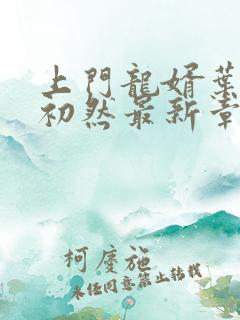 上門龍婿葉
初然最新章
柯慶施
未经同意禁止转载